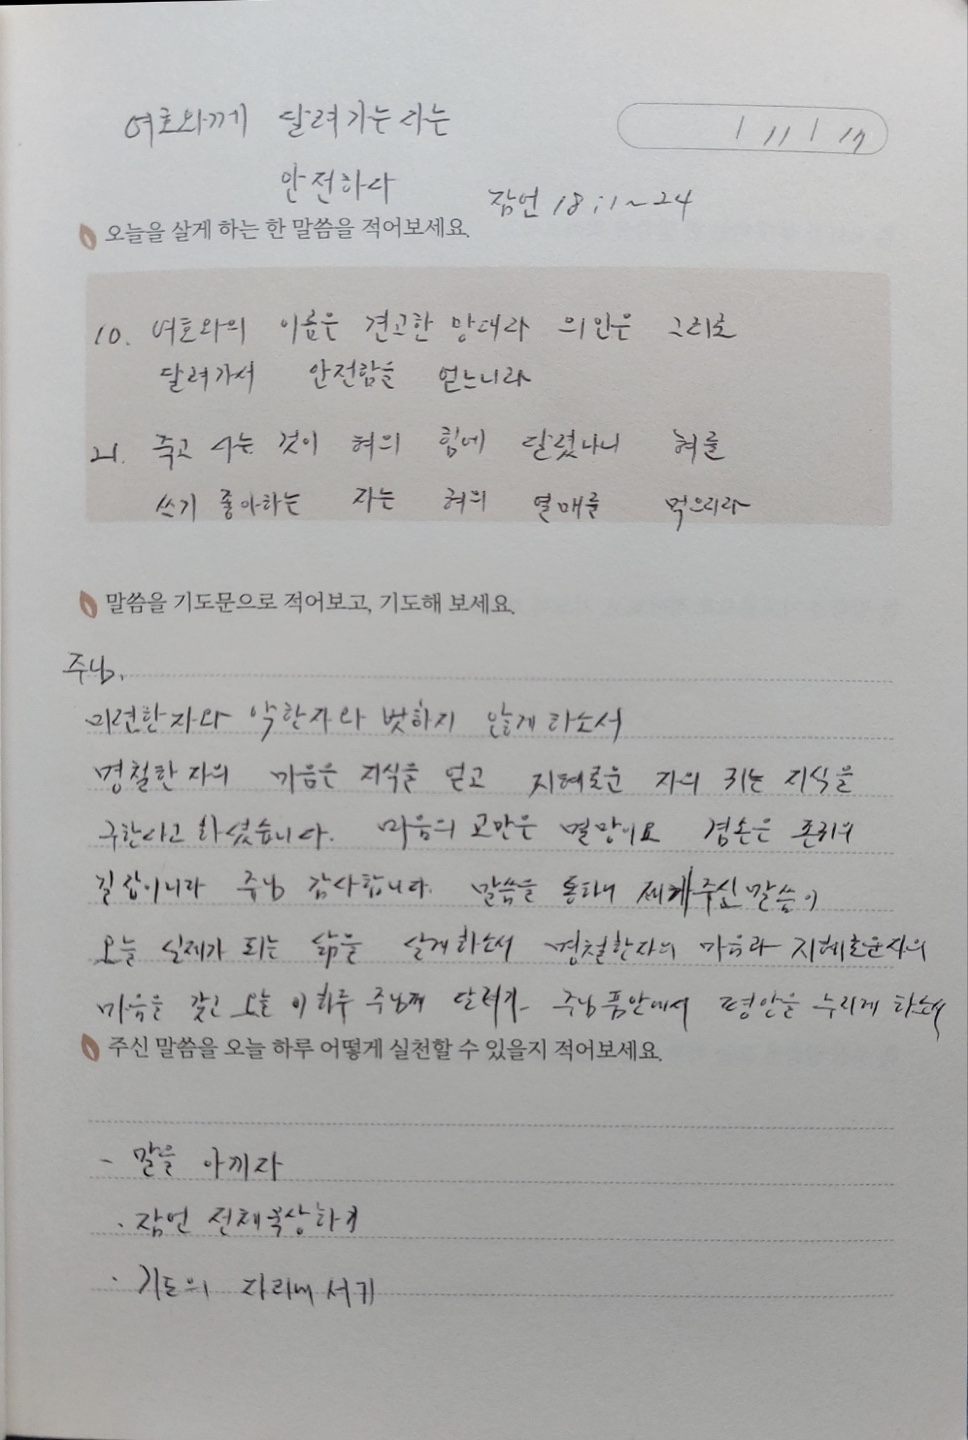 여호와께 달려가는 자는
안전하다
잠언 18:1~24
오늘을 살게 하는 한 말씀을 적어보세요.
10. 여호와의 이름은 견고한 망대라 의인은 그리로
달려가서 안전함을 얻느니라
21. 죽고 사는 것이 혀의 힘에 달렸나니 혀를
쓰기 좋아하는 자는 혀의 열매를 먹으리라
말씀을 기도문으로 적어보고, 기도해 보세요.
주님,
미련한자와 악한자와 벗하지 않게 하소서
명철한 자의 마음은 지식을 얻고 지혜로운 자의 귀는 지식을
구한다고 하셨습니다. 마음의 교만은 멸망이요 겸손은 존귀의
길잡이니라 주님 감사합니다. 말씀을 통하여 깨주신 말씀이
오늘 실제가 되는 삶을 살게하소서 명철한자의 마음과 지혜로운자의
마음을 갖고 오늘 이 하루 주님께 달려가 주님품안에서 평안을 누리게 하소서
주신 말씀을 오늘 하루 어떻게 실천할 수 있을지 적어보세요.
- 말을 아끼자
· 잠언 전체묵상하기
· 기도의 자리에 서기